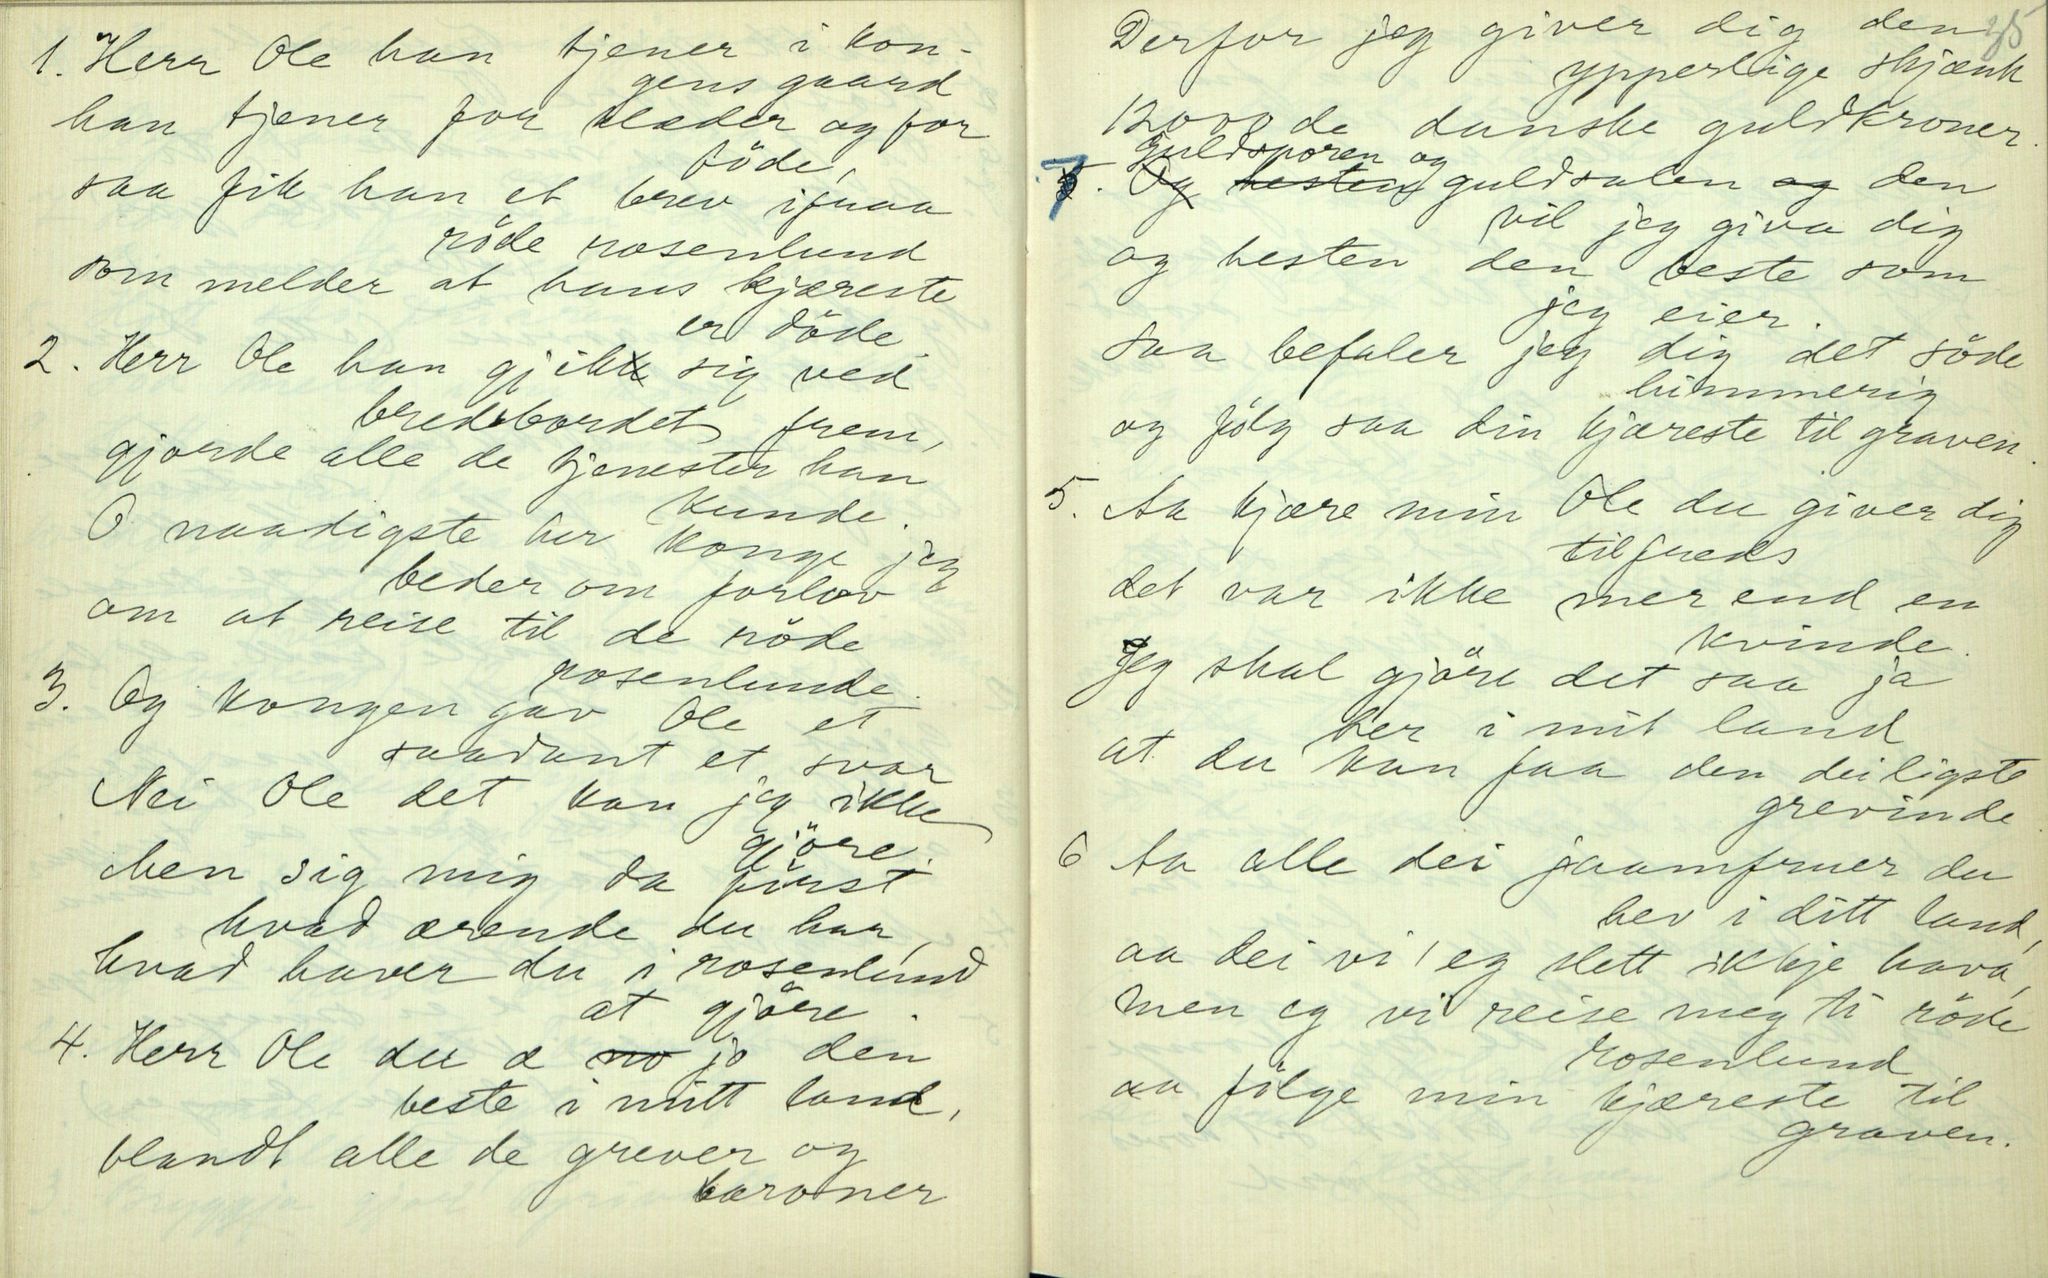 1. Herr Ole han tjener i kon-
gens gaard
han tjener for klæder og for
föde,
saa fik han et brev ifraa
röde rosenlund
som melder at hans kjæreste
er döde.
2. Herr Ole han gjikk sig ved
bredebordet frem,
gjorde alle de tjenester han
kunde.
O naadigste her konge jeg
beder om forlov
om at reise til de röde
rosenlunde.
3. Og kongen gav Ole et
saadant et svar
Nei Ole det kan jeg ikke
gjöre.
Men sig mig da först
hvad ærende du har,
hvad haver du i rosenlund
at gjöre.
4. Herr Ole du æ no jo den
beste i mitt land,
blandt alle de grever og
baroner
35
Derfor jeg giver dig den
ypperlige skjænk
12000 de danske guldkroner.
guldsporen og
7. Og hesten guldsalen og den
vil jeg giva dig
og hesten den beste som
jeg eier.
Saa befaler jeg dig det söde
himmerig
og fölg saa din kjæreste til graven.
5. Aa kjære min Ole du giver dig
tilfreds
det var ikke mer end en
kvinde.
Jeg skal gjöre det saa ja
her i mit land
at du kan faa den deiligste
grevinde
6 Aa alle dei jaamfruer du
hev i ditt land,
aa dei vi eg slett ikkje hava,
men eg vi reise meg ti röde
rosenlund
aa fölge min kjæreste til
graven.